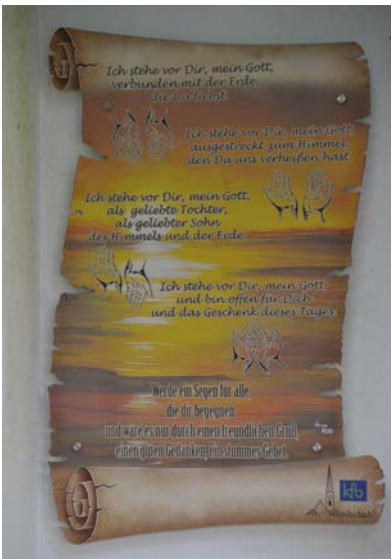 Ich stehe vor Dir, mein Gott,
verbunden mit der Erde,
die Du liebst.
Ich stehe vor Dir, mein Gott
ausgestreckt zum Himmel,
den Du uns verheißen hast.
Ich stehe vor Dir, mein Gott,
als geliebte Tochter,
als geliebter Sohn
des Himmels und der Erde.
Ich stehe vor Dir, mein Gott
und bin offen für Dich
und das Geschenk dieses Tages.
Werde ein Segen für alle,
die dir begegnen:
und wäre es nur durch einen freundlichen Gruß,
einen guten Gedanken, ein stummes Gebet.
kfb